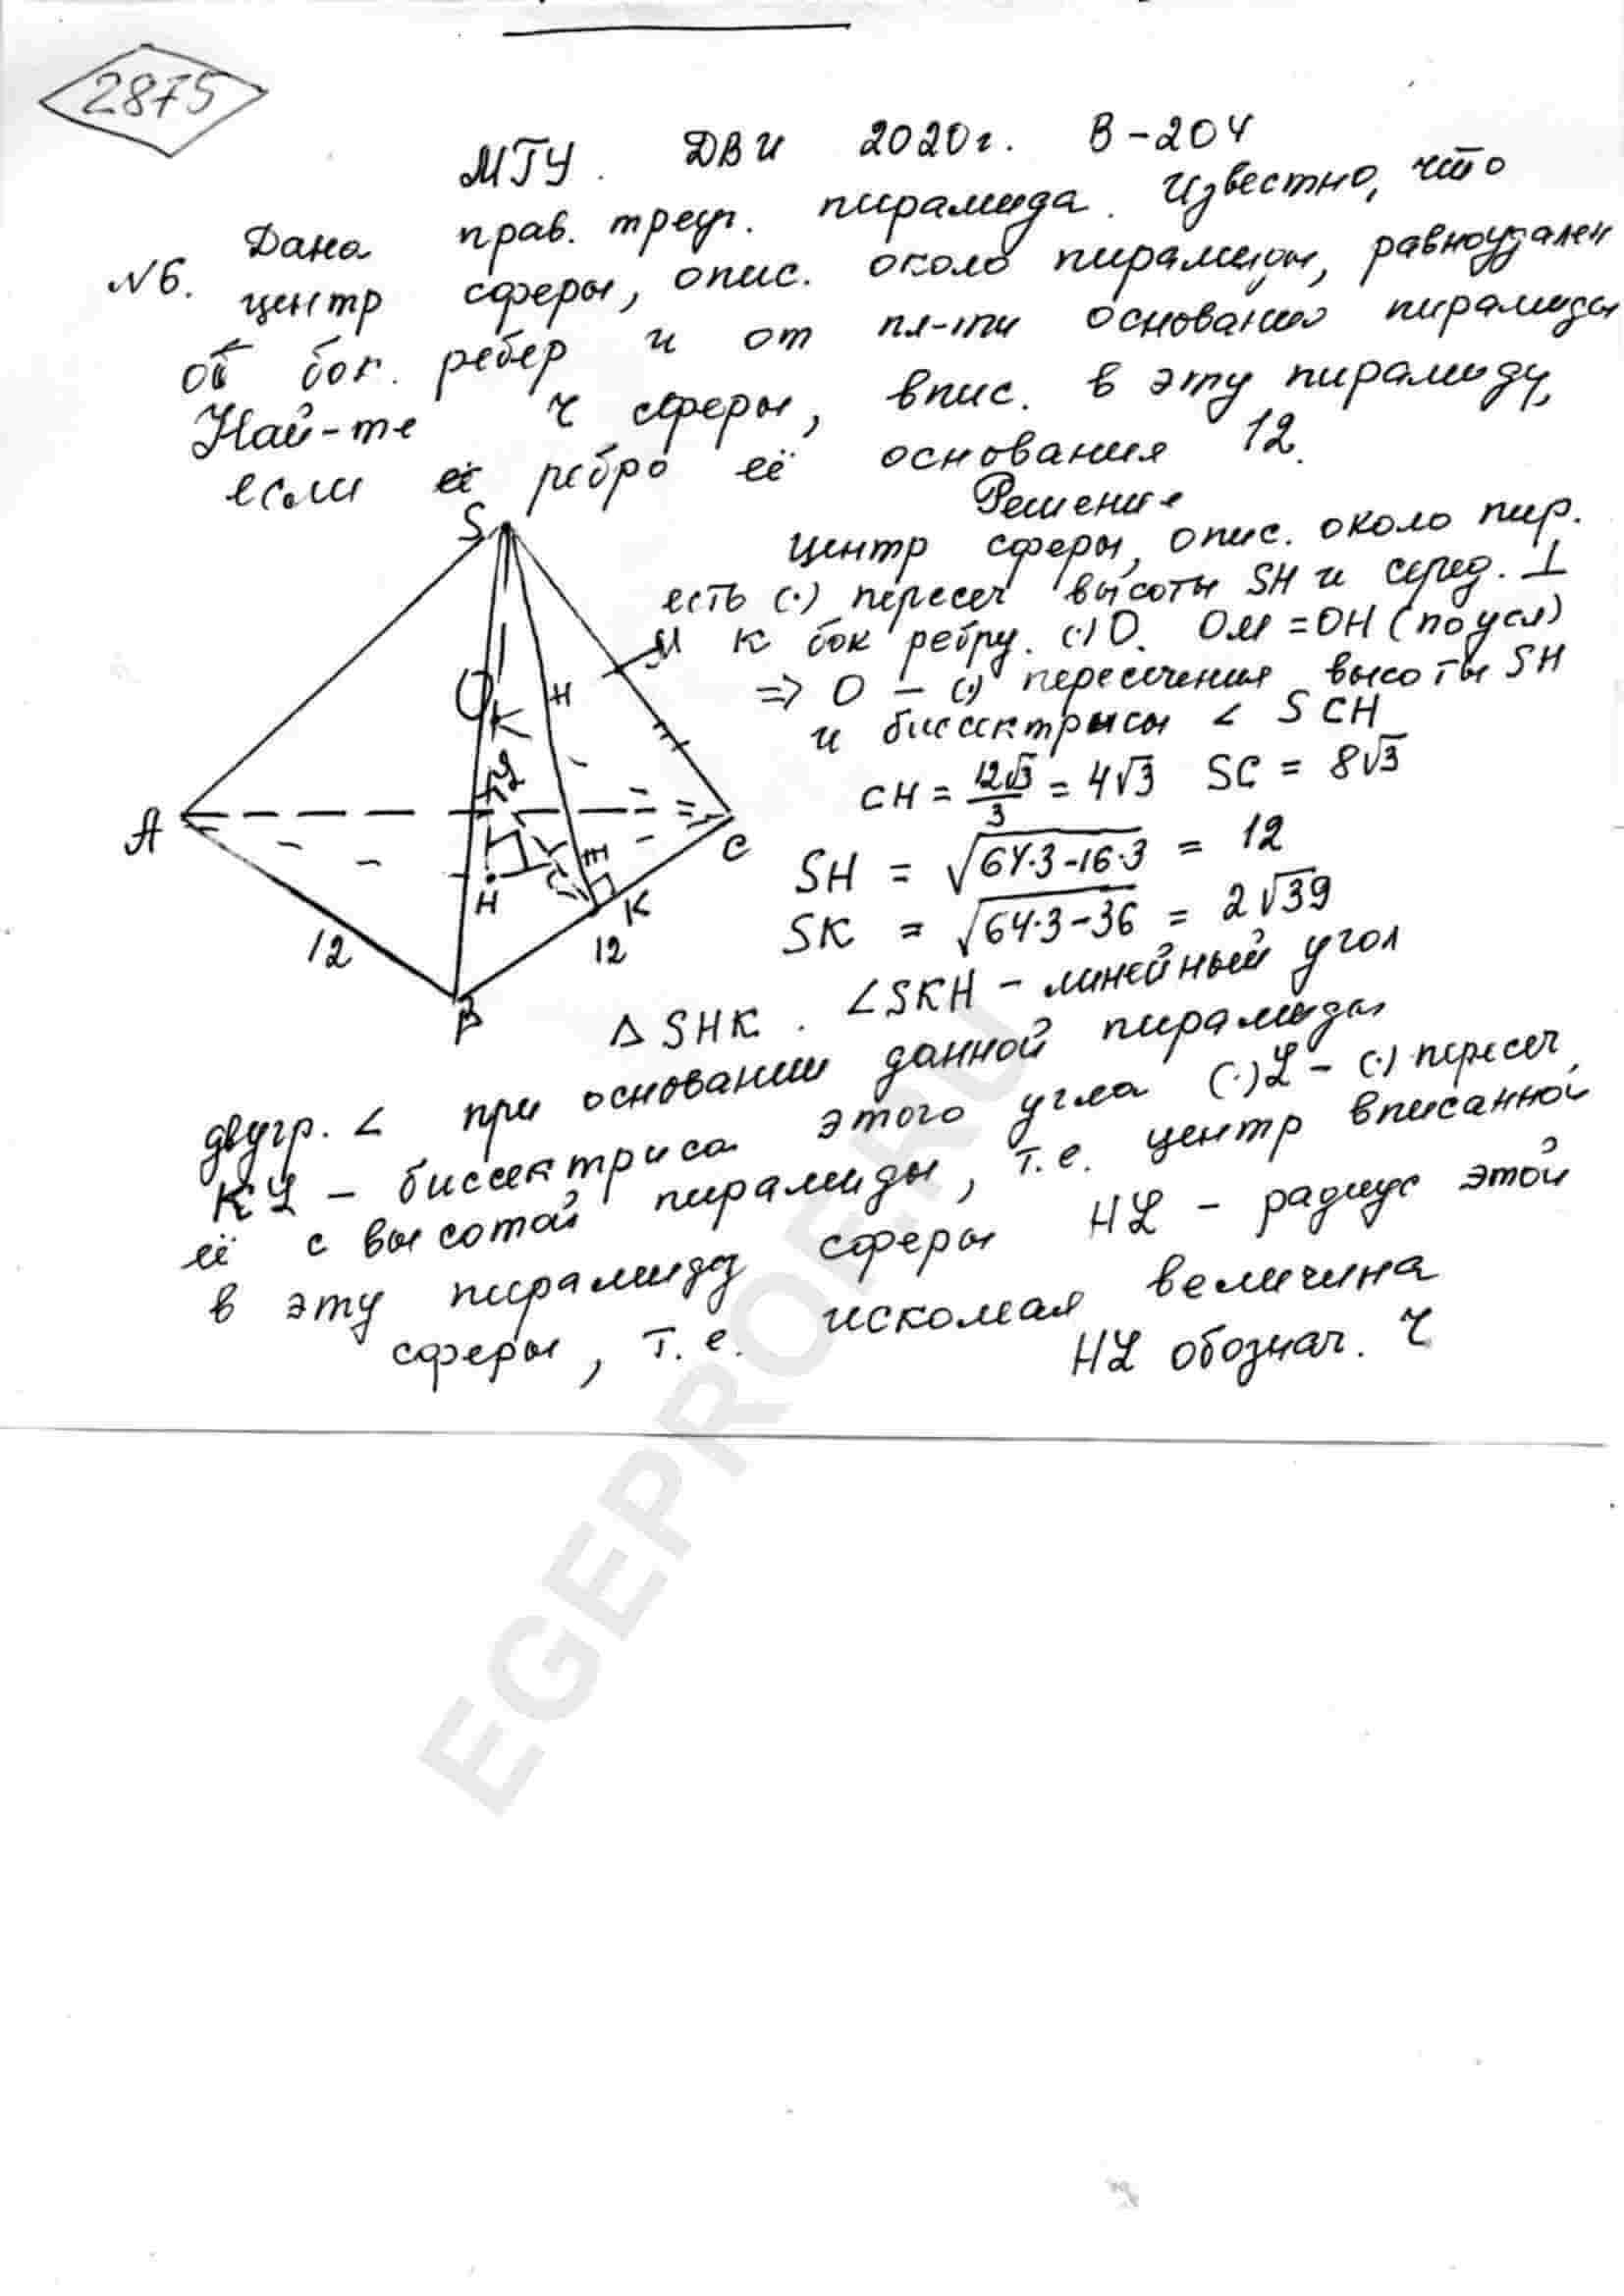 2875
МГУ. ДВИ 2020г. В-204
№6. Дана прав. треуг. пирамида. Известно, что
центр сферы, опис. около пирамиды, равноудален
от бок. ребер и от пл-ти основания пирамиды
Най-те r сферы, впис. в эту пирамиду,
если её ребро её основания 12.
Решение
Центр сферы, опис. около пир.
есть (·) пересеч высоты SH и серед. ⊥
к бок ребру. (·) O. OM = OH (по усл)
=> O – (·) пересечения высоты SH
и биссектрисы ∠ SCH
CH = 12√3/3 = 4√3 SC = 8√3
SH = √(64·3-16·3) = 12
SK = √(64·3-36) = 2√39
Δ SHK. ∠SKH – линейный угол
двугр. ∠ при основании данной пирамиды
KL – биссектриса этого угла (·) L – (·) пересеч.
её с высотой пирамиды, т.е. центр вписанной
в эту пирамиду сферы HL – радиус этой
сферы, т.е. искомая величина
HL обознач. r
S
M
O
K
L
A
H
C
K
B
12
12
EGEPROF.RU